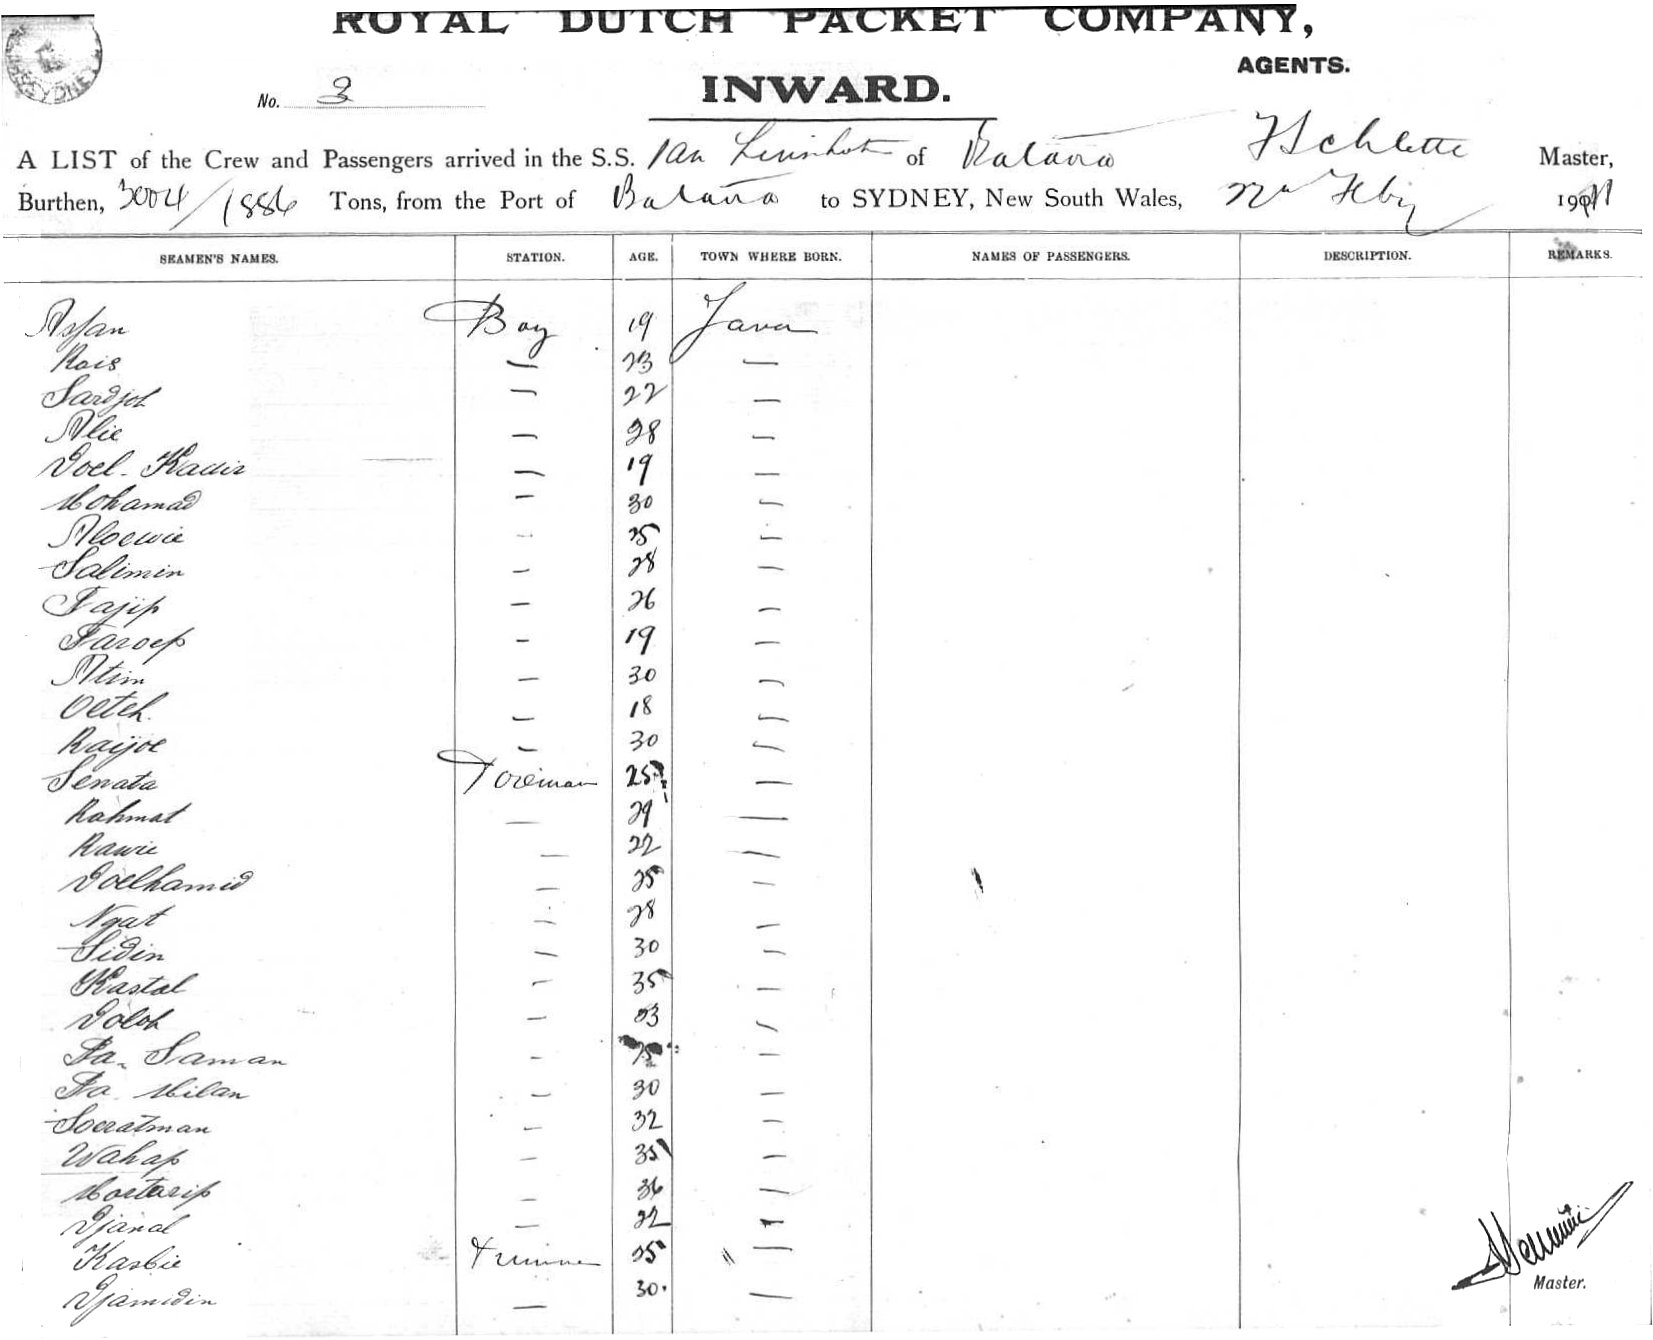 ROYAL DUTCH PACKET COMPANY,
AGENTS.
SYDNEY
No. 3
INWARD.
A LIST of the Crew and Passengers arrived in the S.S. of Batavia Master,
Burthen, 3004/1886 Tons, from the Port of Batavia to SYDNEY, New South Wales, 1911
SEAMEN'S NAMES. STATION. AGE. TOWN WHERE BORN. NAMES OF PASSENGERS. DESCRIPTION. REMARKS.
Boy 19 Java
Rais — 23 —
Sardjot — 22 —
Alie — 28 —
Doel Kadir — 19 —
Mohamad — 30 —
Aloewie — 25 —
Salimin — 28 —
Tajip — 26 —
Taroep — 19 —
Atim — 30 —
Oeteh. — 18 —
— 30 —
Senata Foreman 25 —
Rahmat — 29 —
Rawie — 22 —
Doelhamid — 25 —
Ngat — 28 —
Sidin — 30 —
Kastal — 35 —
— —
Pa. Saman — —
Pa. Milan — 30 —
Soeratman — 32 —
Wahap — 35 —
Moetarip — 36 —
Djanal — 22 —
Kasbie Trimmer 25 —
Djamidin — 30 —
Master.